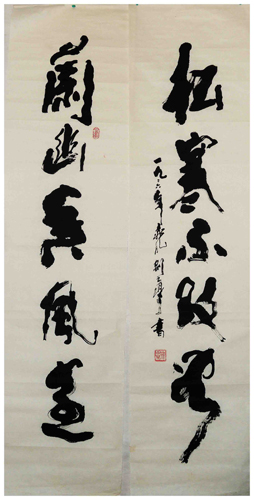 松寒不改容
一九八六年書
蘭幽香風遠